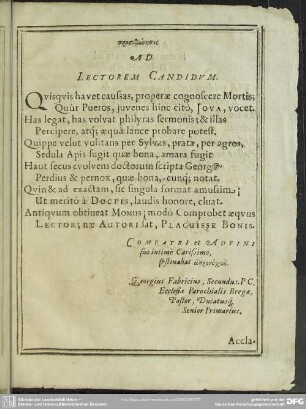 AD
LECTOREM CANDIDVM.
Qvisqvis havet causas, properæ cognoscere Mortis;
Qvùr Pueros, juvenes hinc citò, JOVA, vocet.
Has legat, has volvat philyras sermonis; & illas
Percipere, atq; æquâ lance probare potest.
Quippe velut volitans per Sylvas, prata, per agros,
Sedula Apis fugit quæ bona, amara fugit:
Haut secus evolvens doctorum scripta Georgius
Perdius & pernox, quæ bona, cunq; notat.
Qvin & ad exactam, sic singula format amussim;
Ut meritò à DOCTIS, laudis honore, cluat.
Antiqvum obtineat Momus; modò Comprobet æqvus
LECTOR; næ AUTORI sat, PLACUISSE BONIS.
COMPATRI & AFFINI
suo intimè Carissimo,
festinabat
Georgius Fabricius, Secundus. P.C.
Ecclesiæ Parochialis Bregæ,
Pastor, Ducatusq;
Senior Primarius.
Accla-